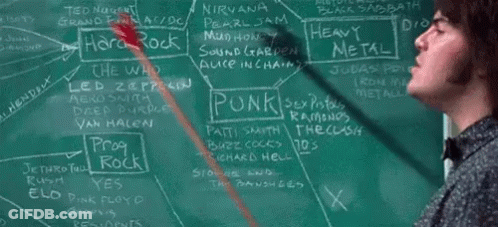 TED NUGENT
GRAND AC/DC
Hard Rock
THE WHO
LED ZEPPELIN
AEROSMITH
DEEP PURPLE
VAN HALEN
Prog Rock
JETHRO TULL
RUSH
ELO
YES
PINK FLOYD
NIRVANA
PEARL JAM
MUDHONEY
SOUNDGARDEN
ALICE IN CHAINS
PUNK
PATTI SMITH
BUZZCOCKS
RICHARD HELL
SIOUXSIE AND
THE BANSHEES
SEX PISTOLS
RAMONES
THE CLASH
70's
BLACK SABBATH
HEAVY METAL
JUDAS
IRON
METAL
X
GIFDB.com